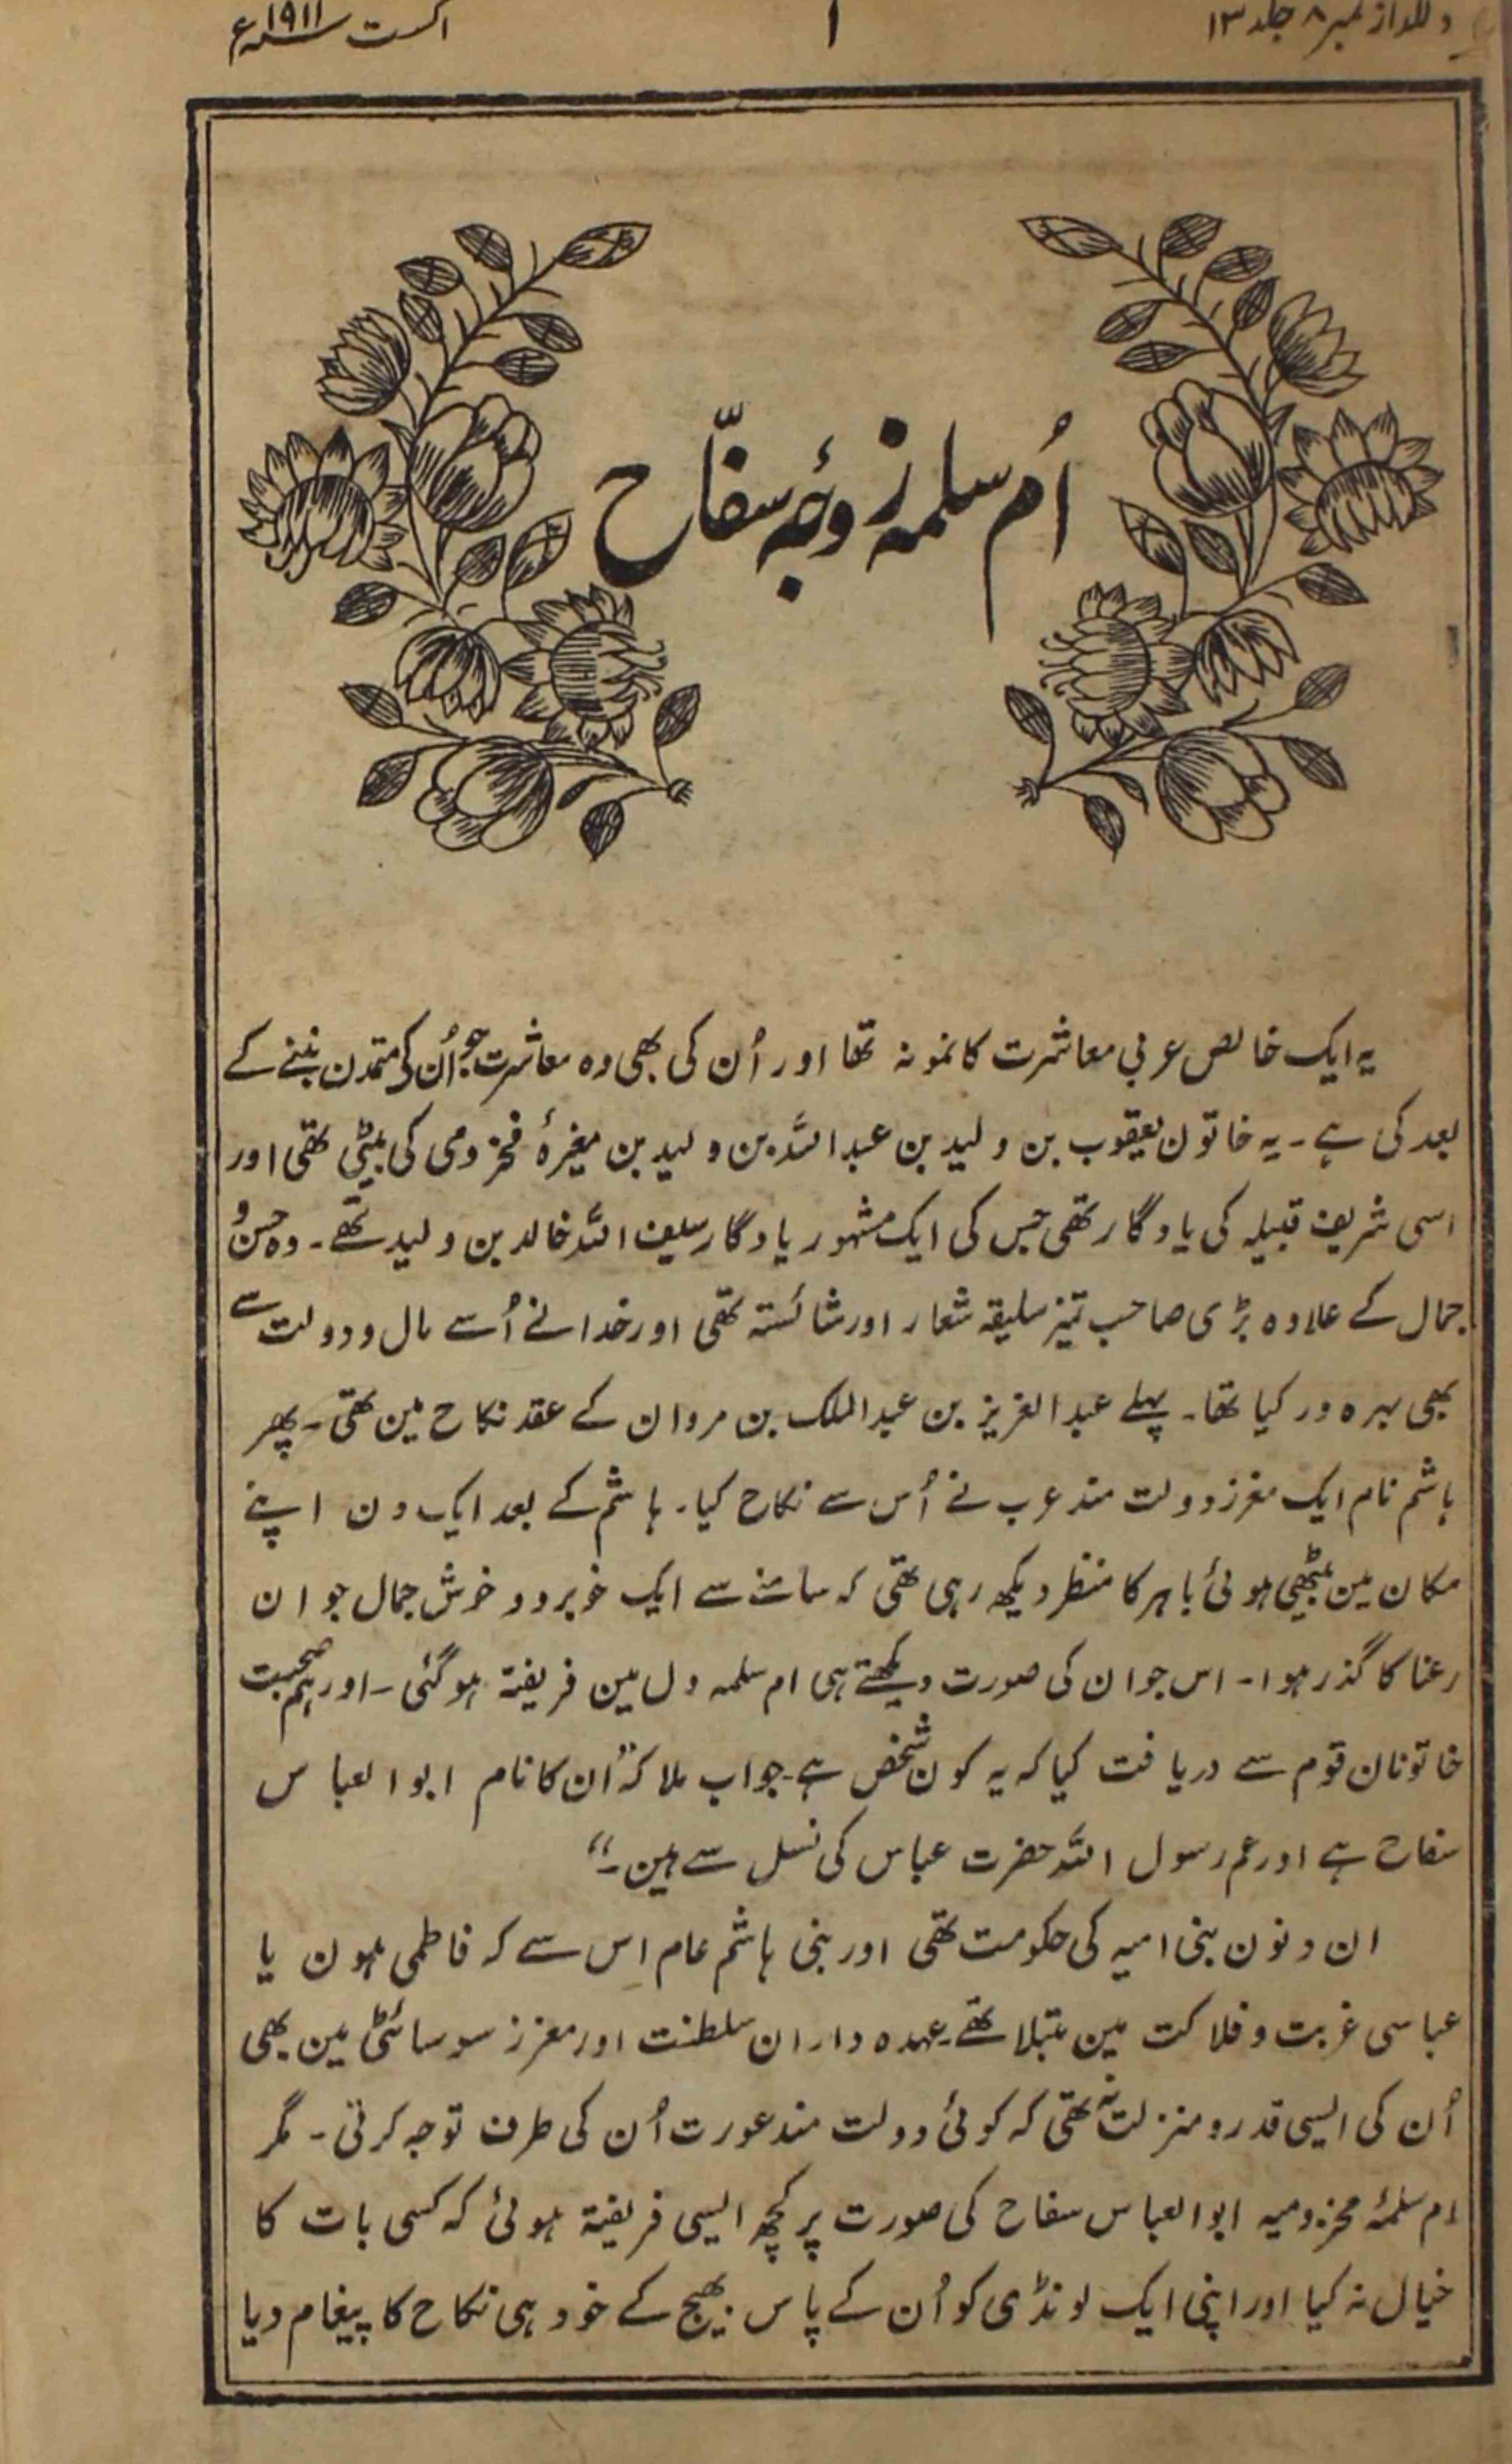 دلگداز نمبر ۸ جلد ۱۳
۱
اگست ۱۹۱۱ء
اُم سلمہ زوجۂ سفّاح
یہ ایک خالص عربی معاشرت کا نمونہ تھا اور اُن کی بھی وہ معاشرت جو اُن کی متمدن بننے کے
بعد کی ہے ۔ یہ خاتون یعقوب بن ولید بن عبد اللہ بن ولید بن مغیرۂ مخزومی کی بیٹی تھی اور
اسی شریف قبیلہ کی یادگار تھی جس کی ایک مشہور یادگار سیف اللہ خالد بن ولید تھے ۔ وہ حسن و
جمال کے علاوہ بڑی صاحب تمیز سلیقہ شعار اور شائستہ تھی اور خدا نے اُسے مال و دولت سے
بھی بہرہ ور کیا تھا ۔ پہلے عبد العزیز بن عبد الملک بن مروان کے عقد نکاح مین تھی ۔ پھر
ہاشم نام ایک معزز دولت مند عرب نے اُس سے نکاح کیا ۔ ہاشم کے بعد ایک دن اپنے
مکان مین بیٹھی ہوئی باہر کا منظر دیکھ رہی تھی کہ سامنے سے ایک خوبرو و خوش جمال جوان
رعنا کا گذر ہوا ۔ اس جوان کی صورت دیکھتے ہی ام سلمہ دل مین فریفتہ ہو گئی ۔ اور ہم صحبت
خاتونان قوم سے دریافت کیا کہ یہ کون شخص ہے ۔ جواب ملا کہ "اُن کا نام ابو العباس
سفاح ہے اور عم رسول اللہ حضرت عباس کی نسل سے ہین ۔"
ان دنون بنی امیہ کی حکومت تھی اور بنی ہاشم عام اِس سے کہ فاطمی ہون یا
عباسی غربت و فلاکت مین مبتلا تھے ۔ عہدہ داران سلطنت اور معزز سوسائٹی مین بھی
اُن کی ایسی قدر و منزلت نہ تھی کہ کوئی دولت مند عورت اُن کی طرف توجہ کرتی ۔ مگر
ام سلمۂ مخزومیہ ابو العباس سفاح کی صورت پر کچھ ایسی فریفتہ ہوئی کہ کسی بات کا
خیال نہ کیا اور اپنی ایک لونڈی کو اُن کے پاس بھیج کے خود ہی نکاح کا پیغام دیا